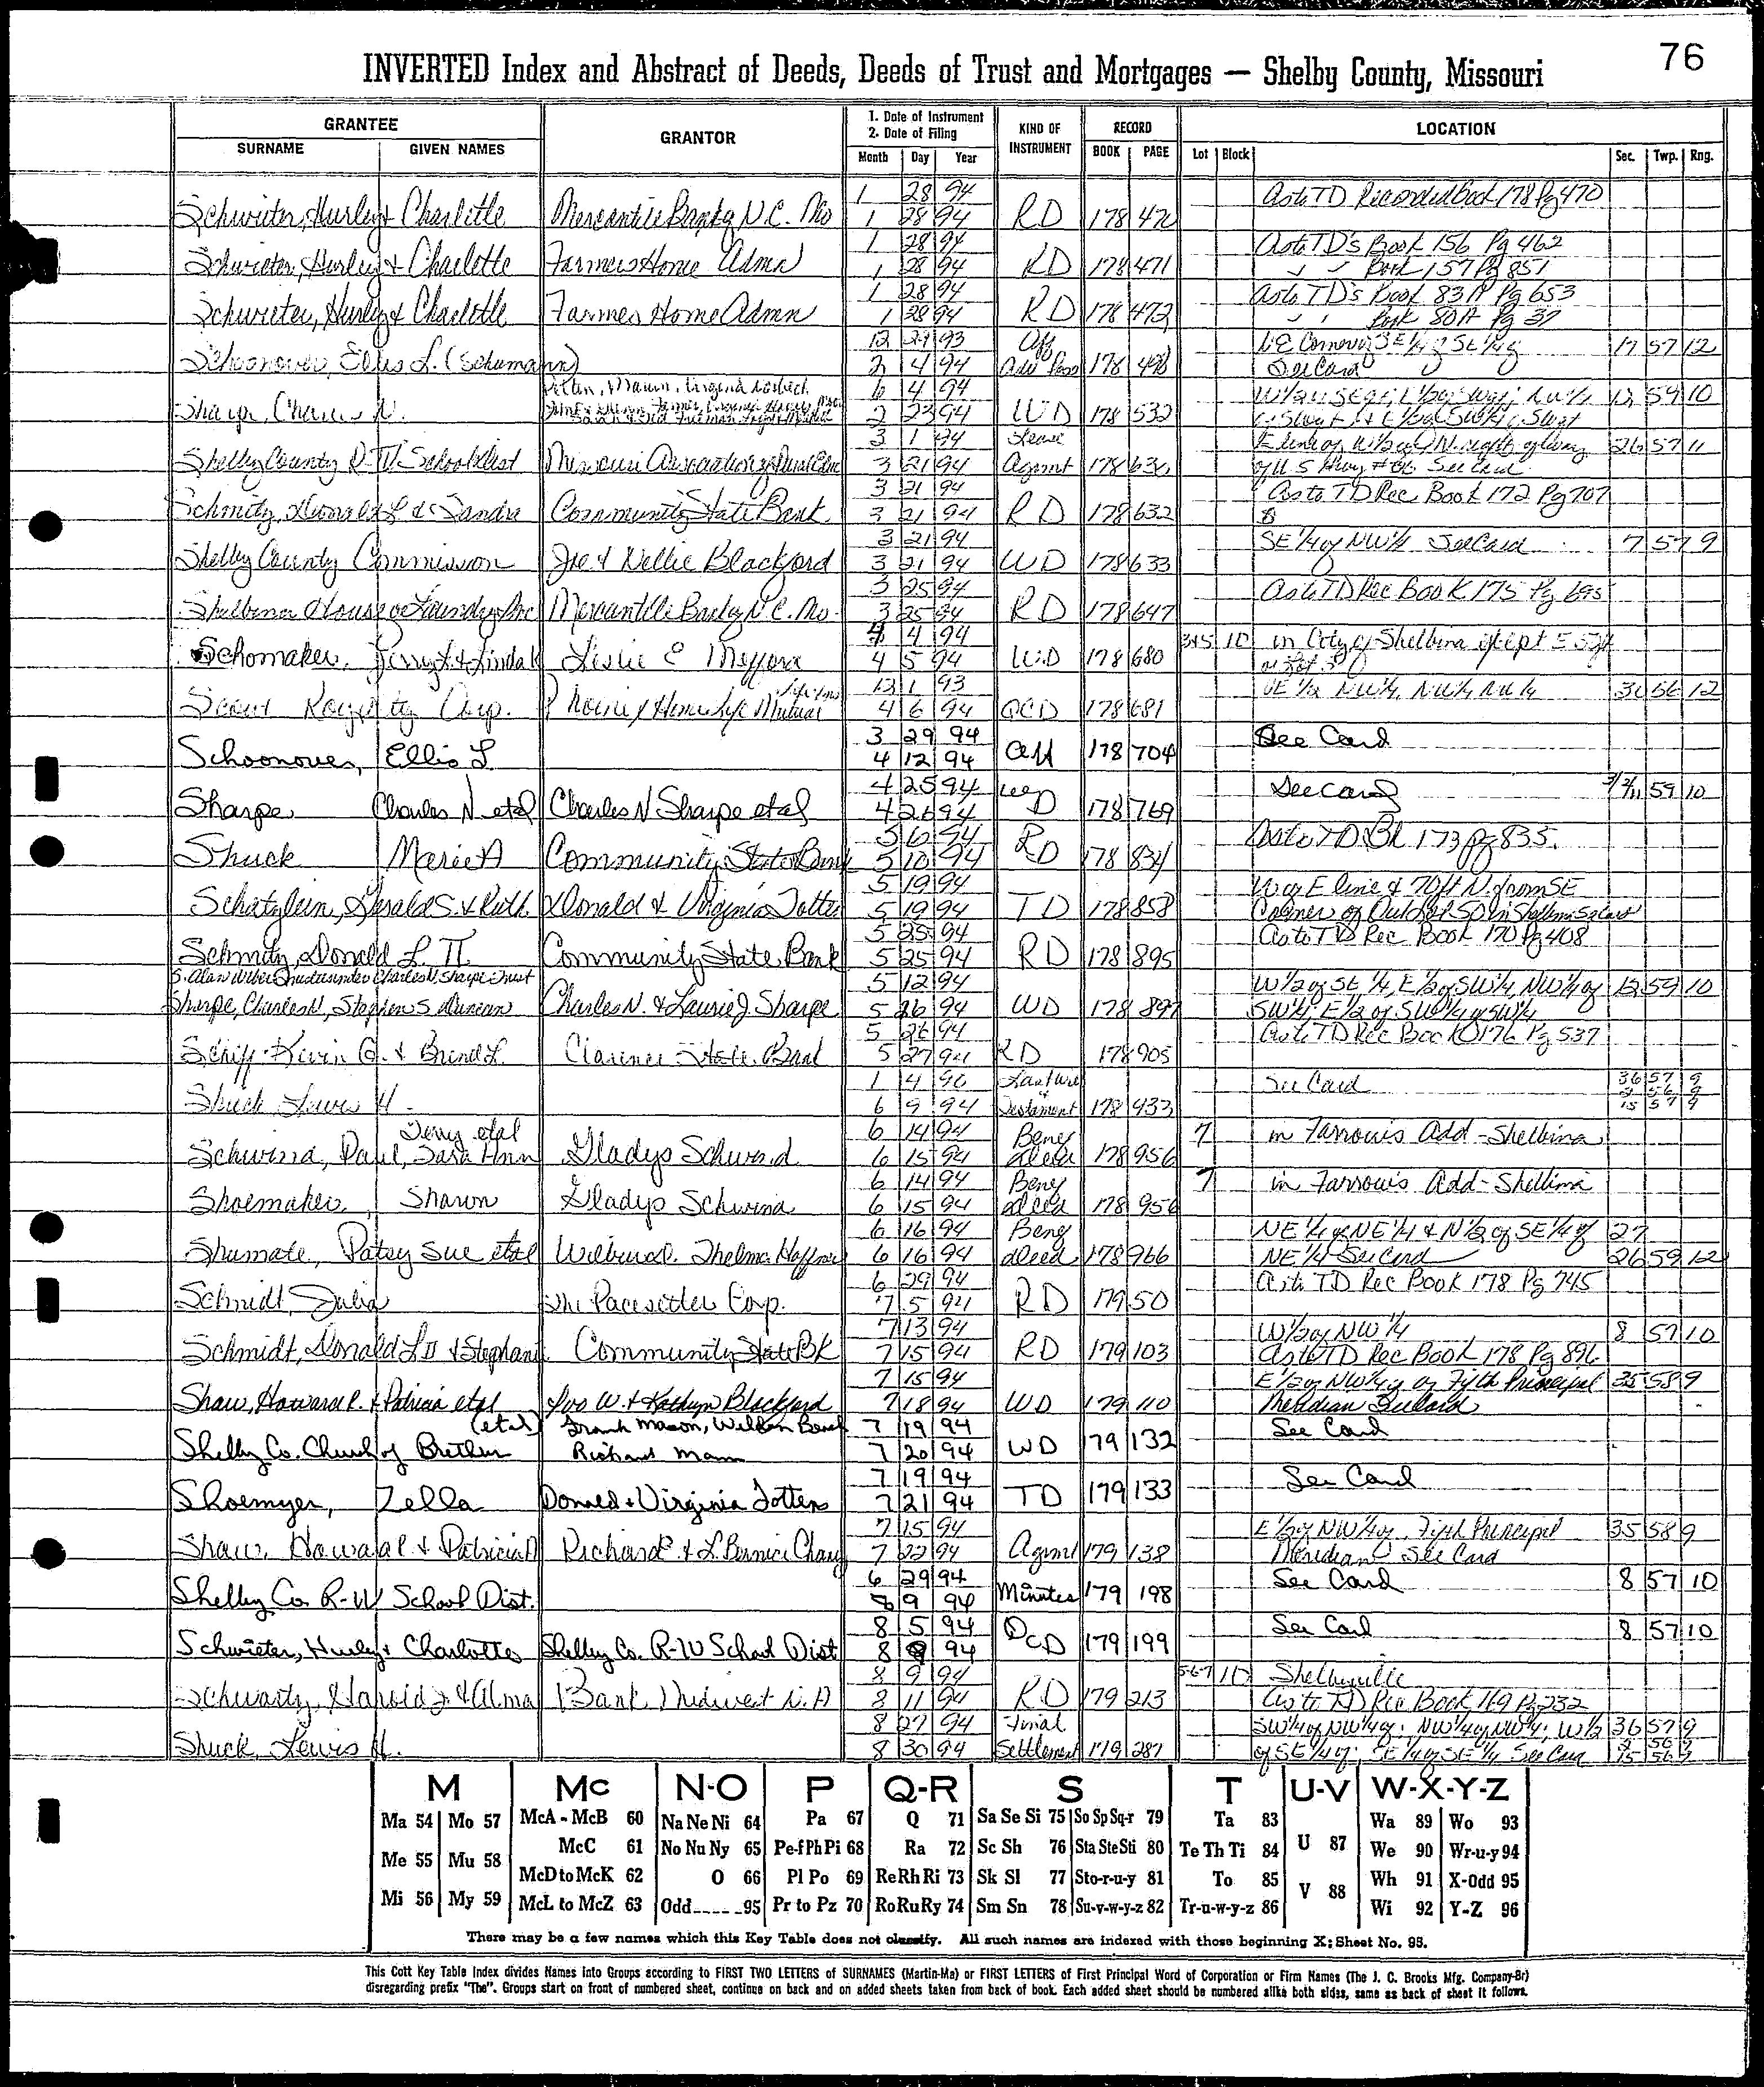 76
INVERTED Index and Abstract of Deeds, Deeds of Trust and Mortgages — Shelby County, Missouri
GRANTEE GRANTOR 1. Date of Instrument 2. Date of Filing KIND OF INSTRUMENT RECORD LOCATION
SURNAME GIVEN NAMES Month Day Year BOOK PAGE Lot Block Sec. Twp. Rng.
1 28 94 As to TD Recorded Book 178 Pg 470
Schwieter, Hurley & Charlotte Mercantile Bank of N.C. Mo 1 28 94 RD 178 470
1 28 94 As to TD's Book 156 Pg 462
Schwieter, Hurley & Charlotte Farmers Home Admn 1 28 94 RD 178 471 Book 157 Pg 851
1 28 94 As to TD's Book 83A Pg 653
Schwieter, Hurley & Charlotte Farmers Home Admn 1 28 94 RD 178 472 Book 80A Pg 37
12 93 Aff NE Corner SE 1/4 of SE 1/4 of 17 57 12
Schoonover, Ellis L. (Schumann) 2 4 94 178 See Card
4 94 12 59 10
Charles N. 2 23 94 WD 178 532
3 1 94 Lease 26 57 11
Shelby County R-IV School Dist Missouri Association of 3 21 94 Agrmt 178 630 of U S Hwy #36 See Card
3 21 94 As to TD Rec Book 172 Pg 707
Schmitz, Donald L & Sandra Community State Bank 3 21 94 RD 178 632
3 21 94 SE 1/4 of NW 1/4 See Card 7 57 9
Shelby County Commission Joe & Nellie Blackford 3 21 94 WD 178 633
3 25 94 As to TD Rec Book 175 Pg 695
Shelbina House of Laundry Inc Mercantile Bank of N.C. Mo. 3 25 94 RD 178 647
4 4 94 10 in City of Shelbina except
Schomaker, Jerry L & Linda K Leslie C 4 5 94 WD 178 680
1 93 NW 1/4, NW 1/4 12
Royalty Corp. Home Life Mutual 4 6 94 QCD 178 681
3 29 94 See Card
Schoonover, Ellis L 4 12 94 Aff 178 704
4 25 94 See Card 59 10
Sharpe Charles N etal Charles N Sharpe etal 4 26 94 D 178 769
5 6 94 As to TD Bk 173 Pg 835.
Shuck Marie A Community State Bank 5 10 94 RD 178 834
5 19 94 W of E line & 70 ft N. from SE
Schatzlein, Gerald S. & Ruth Donald & Virginia Totten 5 19 94 TD 178 858 Corner of Outlot 50 in Shelbina
5 25 94 As to TD Rec Book 170 Pg 408
Schmitz, Donald L. II Community State Bank 5 25 94 RD 178 895
S. Alan Trustee under Charles N. Sharpe Trust 5 12 94 W 1/2 of SE 1/4, E 1/2 of SW 1/4, NW 1/4 of 12 59 10
Sharpe, Charles N, Stephen S Duncan Charles N. & Laurie J. Sharpe 5 26 94 WD 178 897 SW 1/4; E 1/2 of SW 1/4 of SW 1/4
5 26 94 As to TD Rec Book 176 Pg 537
Schiff Kevin & Clarence State Bank 5 27 94 RD 178 905
1 4 90 Last Will See Card 36 57 9
Shuck Lewis H. 6 9 94 Testament 178 933 15 57 9
Terry etal 6 14 94 Beney 7 in Farrow's Add-Shelbina
Schwind, Paul, Sara Ann Gladys Schwind 6 15 94 deed 178 956
6 14 94 Beney 7 in Farrow's Add-Shelbina
Shoemaker, Sharon Gladys Schwind 6 15 94 deed 178 956
6 16 94 Beney NE 1/4 of NE 1/4 & N 1/2 of SE 1/4 of 27
Shumate, Patsy Sue etal Wilbur & Thelma 6 16 94 deed 178 966 NE 1/4 See Card 26 59 12
6 29 94 As to TD Rec Book 178 Pg 745
Schmidt, Julia The Pacesetter Corp. 7 5 94 RD 179 50
7 13 94 W 1/2 of NW 1/4 8 57 10
Schmidt, Donald L II & Stephanie Community State Bk 7 15 94 RD 179 103 As to TD Rec Book 178 Pg 896
7 15 94 E 1/2 of NW 1/4 of Fifth Principal 35 58 9
Shaw, Howard R. & Patricia etal W. & Kathryn Blackford 7 18 94 WD 179 110 Meridian
(etal) Frank Mason, 7 19 94 See Card
Shelby Co. Church of Brethern Richard Mann 7 20 94 WD 179 132
7 19 94 See Card
Shoemyer, Zella Donald & Virginia Totten 7 21 94 TD 179 133
7 15 94 E 1/2 of NW 1/4 of Fifth Principal 35 58 9
Shaw, Howard R. & Patricia A Richard P. & L. Bernice 7 22 94 Agrmt 179 138 Meridian See Card
6 29 94 See Card 8 57 10
Shelby Co. R-IV School Dist. 8 9 94 Minutes 179 198
8 5 94 See Card 8 57 10
Schwieter, Hurley & Charlotte Shelby Co. R-IV School Dist 8 9 94 QCD 179 199
8 9 94 5-6-7 10 Shelbyville
Schwartz, Harold J & Alma Bank Midwest N.A 8 11 94 RD 179 213 As to TD Rec Book 169 Pg 232
8 27 94 Final SW 1/4 of NW 1/4 of; NW 1/4 of NW 1/4; W 1/2 36 57 9
Shuck, Lewis H. 8 30 94 Settlement 179 287 of SE 1/4 of; SE 1/4 of SE 1/4 See Card 15 56 9
M Mc N-O P Q-R S T U-V W-X-Y-Z
Ma 54 Mo 57 McA - McB 60 Na Ne Ni 64 Pa 67 Q 71 Sa Se Si 75 So Sp Sq-r 79 Ta 83 U 87 Wa 89 Wo 93
Me 55 Mu 58 McC 61 No Nu Ny 65 Pe-f Ph Pi 68 Ra 72 Sc Sh 76 Sta Ste Sti 80 Te Th Ti 84 We 90 Wr-u-y 94
McD to McK 62 O 66 Pl Po 69 Re Rh Ri 73 Sk Sl 77 Sto-r-u-y 81 To 85 V 88 Wh 91 X-Odd 95
Mi 56 My 59 McL to McZ 63 Odd----95 Pr to Pz 70 Ro Ru Ry 74 Sm Sn 78 Su-v-w-y-z 82 Tr-u-w-y-z 86 Wi 92 Y-Z 96
There may be a few names which this Key Table does not classify. All such names are indexed with those beginning X; Sheet No. 95.
This Cott Key Table Index divides Names into Groups according to FIRST TWO LETTERS of SURNAMES (Martin-Ma) or FIRST LETTERS of First Principal Word of Corporation or Firm Names (The J. C. Brooks Mfg. Company-Br)
disregarding prefix "The". Groups start on front of numbered sheet, continue on back and on added sheets taken from back of book. Each added sheet should be numbered alike both sides, same as back of sheet it follows.